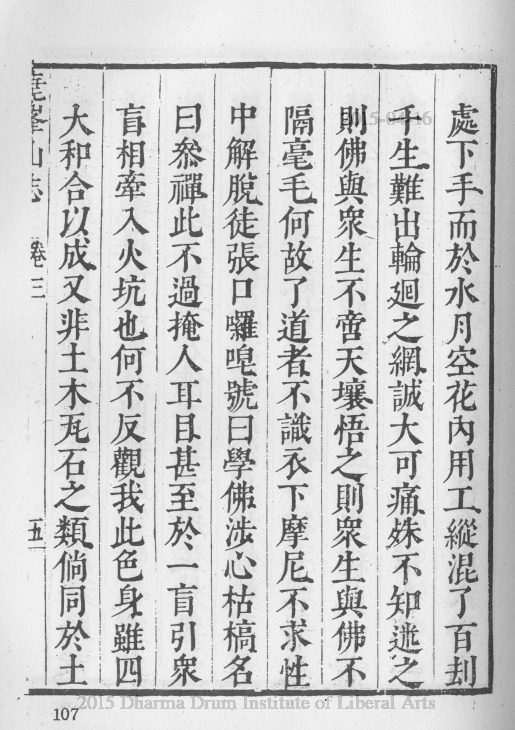 處下手而於水月空花內用工縱混了百刦
千生難出輪廻之網誠大可痛姝不知迷之
則佛與衆生不啻天壤悟之則衆生與佛不
隔毫毛何故了道者不識衣下摩尼不求性
中解脫徒張口囉唣號曰學佛涉心枯槁名
曰叅禪此不過掩人耳目甚至於一盲引衆
盲相牽入火坑也何不反觀我此色身雖四
大和合以成又非土木瓦石之類倘同於土
堯峯山志 卷三 五
107
2015 Dharma Drum Institute of Liberal Arts